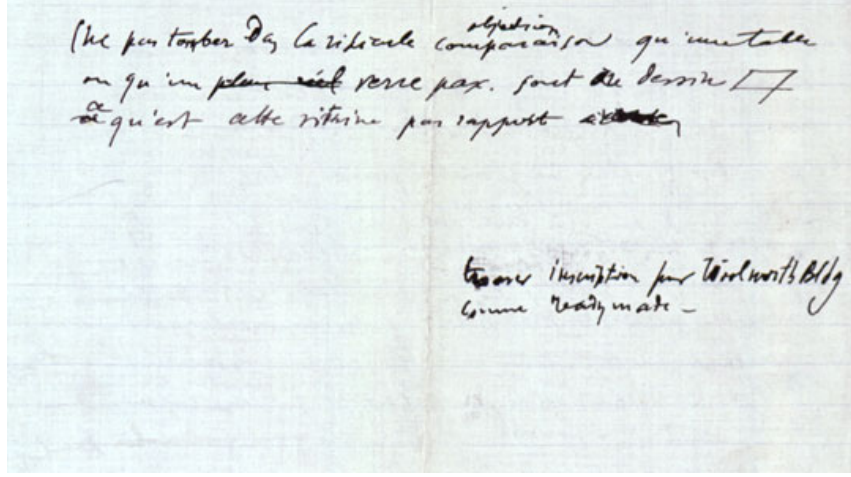 (Ne pas tomber Ds la ridicule objection comparaison qu'une table
ou qu'un plan réel verre par. sont au dessin
ce qu'est cette vitrine par rapport
trouver inscription pour Woolworth Bldg
comme readymade —